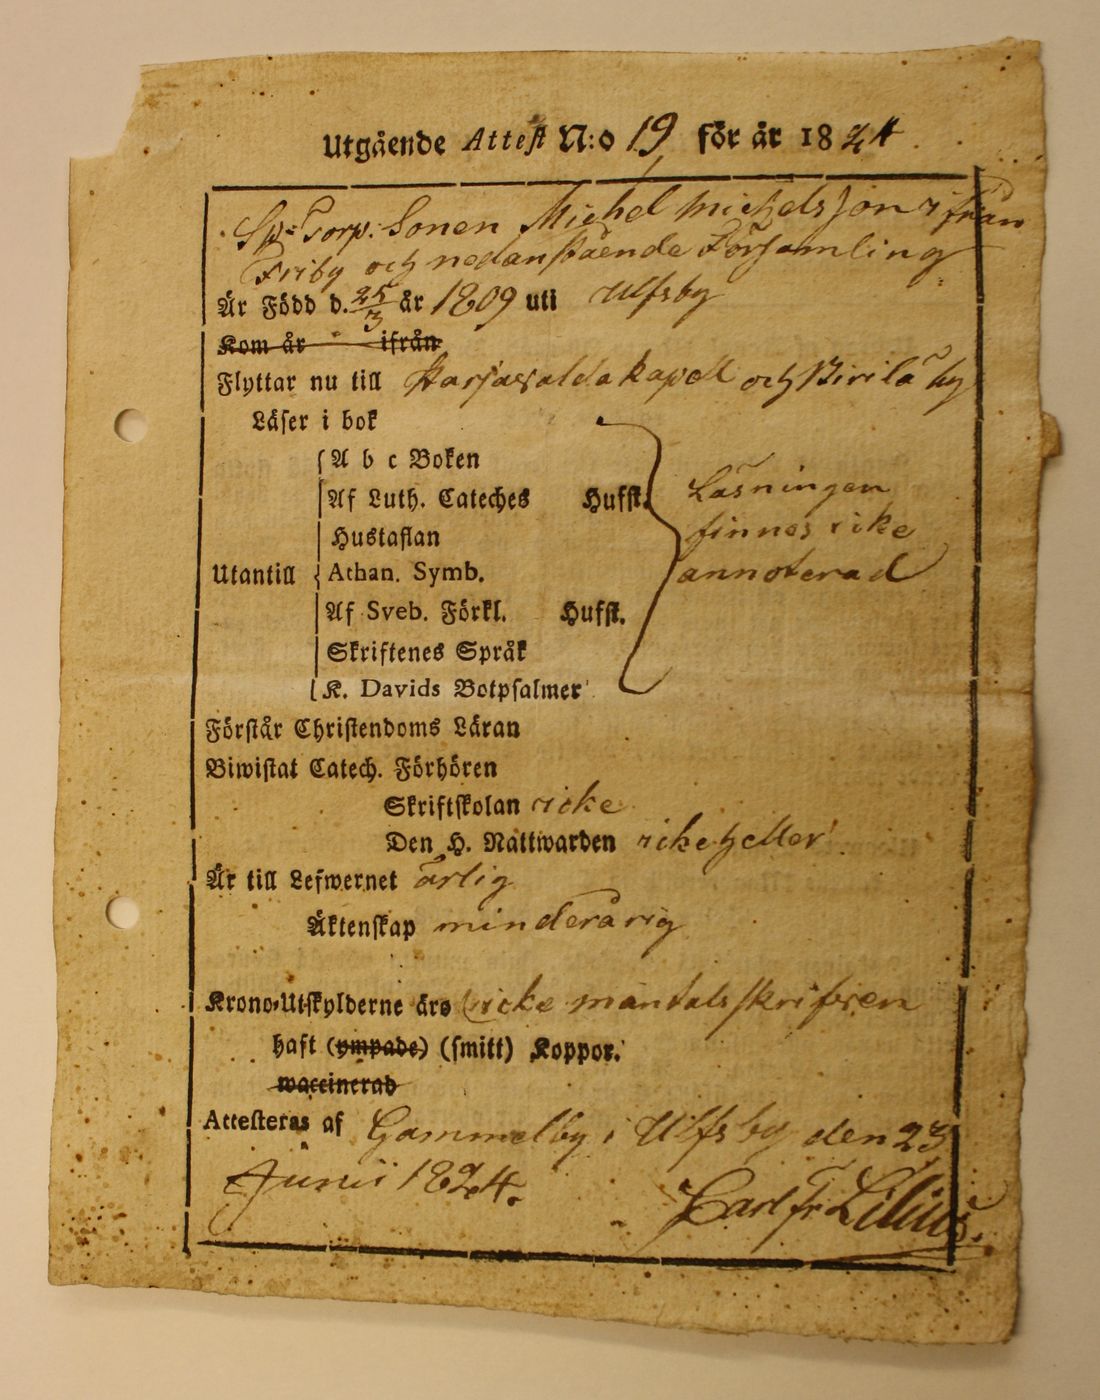 Utgående Attest N:o 19 för år 1824
Sp: Torp: Sonen Michel Michelsson ifrån
Friby och nedanstående Församling
Är Född d. 25/3 år 1809 uti Ulfsby
Kom år ifrån
Flyttar nu till kapell och by
Läser i bok
A b c Boken
Af Luth. Cateches Hufst. Läsningen
Hustaflan finnes icke
Utantill Athan. Symb. annoterad
Af Sveb. Förkl. Hufst.
Skriftenes Språk
K. Davids Botpsalmer
Förstår Christendoms Läran
Biwistat Catech. Förhören
Skriftskolan icke
Den H. Nattwarden icke heller
Är till Lefwernet ärlig
Äktenskap minderårig
Krono-Utskylderne äro icke mantalsskrifven
haft (ympade) (smitt) Koppor.
waccinerad
Attesteras af Gammelby i Ulfsby den 23
Junii 1824.
Carl Fr Lilius.